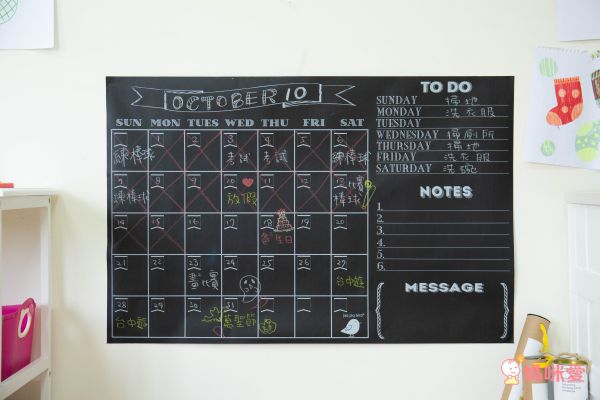 OCTOBER 10
SUN MON TUES WED THU FRI SAT
1 2 3 4 5 6
練棒球 考試 考試 練棒球
9 10 11 12
練棒球 放假 比賽 棒球
14 15 16 17 18 19 20
生日
21 22 23 24 25 26 27
畫比賽 台中遊
28 29 30 31
台中遊 萬聖節
TO DO
SUNDAY 掃地
MONDAY 洗衣服
TUESDAY
WEDNESDAY 掃廁所
THURSDAY 掃地
FRIDAY 洗衣服
SATURDAY 洗碗
NOTES
1.
2.
3.
4.
5.
6.
MESSAGE
媽咪愛